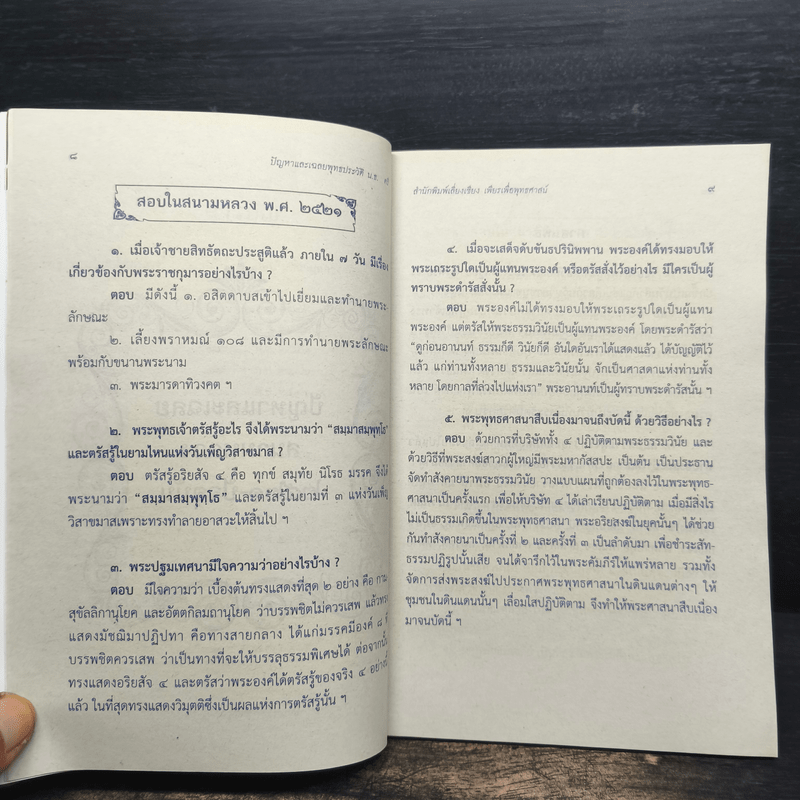 ๘
ปัญหาและเฉลยพุทธประวัติ น.ธ.
สอบในสนามหลวง พ.ศ. ๒๔๒๑
๑. เมื่อเจ้าชายสิทธัตถะประสูติแล้ว ภายใน ๗ วัน มีเรื่อง
เกี่ยวข้องกับพระราชกุมารอย่างไรบ้าง ?
ตอบ มีดังนี้ ๑. อสิตดาบสเข้าไปเยี่ยมและทำนายพระ
ลักษณะ
๒. เลี้ยงพราหมณ์ ๑๐๘ และมีการทำนายพระลักษณะ
พร้อมกับขนานพระนาม
๓. พระมารดาทิวงคต ฯ
๒. พระพุทธเจ้าตรัสรู้อะไร จึงได้พระนามว่า “สมฺมาสมฺพุทฺโธ”
และตรัสรู้ในยามไหนแห่งวันเพ็ญวิสาขมาส ?
ตอบ ตรัสรู้อริยสัจ ๔ คือ ทุกข์ สมุทัย นิโรธ มรรค จึงได้
พระนามว่า “สมฺมาสมฺพุทฺโธ” และตรัสรู้ในยามที่ ๓ แห่งวันเพ็ญ
วิสาขมาสเพราะทรงทำลายอาสวะให้สิ้นไป ฯ
๓. พระปฐมเทศนามีใจความว่าอย่างไรบ้าง ?
ตอบ มีใจความว่า เบื้องต้นทรงแสดงที่สุด ๒ อย่าง คือ กาม
สุขัลลิกานุโยค และอัตตกิลมถานุโยค ว่าบรรพชิตไม่ควรเสพ แล้วทรง
แสดงมัชฌิมาปฏิปทา คือทางสายกลาง ได้แก่มรรคมีองค์ ๘ ที่
บรรพชิตควรเสพ ว่าเป็นทางที่จะให้บรรลุธรรมพิเศษได้ ต่อจากนั้น
ทรงแสดงอริยสัจ ๔ และตรัสว่าพระองค์ได้ตรัสรู้ของจริง ๔ อย่างนี้
แล้ว ในที่สุดทรงแสดงวิมุตติซึ่งเป็นผลแห่งการตรัสรู้นั้น ฯ
สำนักพิมพ์เลี่ยงเชียง เพียรเพื่อพุทธศาสน์
๙
๔. เมื่อจะเสด็จดับขันธปรินิพพาน พระองค์ได้ทรงมอบให้
พระเถระรูปใดเป็นผู้แทนพระองค์ หรือตรัสสั่งไว้อย่างไร มีใครเป็นผู้
ทราบพระดำรัสสั่งนั้น ?
ตอบ พระองค์ไม่ได้ทรงมอบให้พระเถระรูปใดเป็นผู้แทน
พระองค์ แต่ตรัสให้พระธรรมวินัยเป็นผู้แทนพระองค์ โดยพระดำรัสว่า
“ดูก่อนอานนท์ ธรรมก็ดี วินัยก็ดี อันใดอันเราได้แสดงแล้ว ได้บัญญัติไว้
แล้ว แก่ท่านทั้งหลาย ธรรมและวินัยนั้น จักเป็นศาสดาแห่งท่านทั้ง
หลาย โดยกาลที่ล่วงไปแห่งเรา” พระอานนท์เป็นผู้ทราบพระดำรัสนั้น ฯ
๕. พระพุทธศาสนาสืบเนื่องมาจนถึงบัดนี้ ด้วยวิธีอย่างไร ?
ตอบ ด้วยการที่บริษัททั้ง ๔ ปฏิบัติตามพระธรรมวินัย และ
ด้วยวิธีที่พระสงฆ์สาวกผู้ใหญ่มีพระมหากัสสปะ เป็นต้น เป็นประธาน
จัดทำสังคายนาพระธรรมวินัย วางแบบแผนที่ถูกต้องลงไว้ในพระพุทธ-
ศาสนาเป็นครั้งแรก เพื่อให้บริษัท ๔ ได้เล่าเรียนปฏิบัติตาม เมื่อมีสิ่งไร
ไม่เป็นธรรมเกิดขึ้นในพระพุทธศาสนา พระอริยสงฆ์ในยุคนั้นๆ ได้ช่วย
กันทำสังคายนาเป็นครั้งที่ ๒ และครั้งที่ ๓ เป็นลำดับมา เพื่อชำระสัท-
ธรรมปฏิรูปนั้นเสีย จนได้จารึกไว้ในพระคัมภีร์ให้แพร่หลาย รวมทั้ง
จัดการส่งพระสงฆ์ไปประกาศพระพุทธศาสนาในดินแดนต่างๆ ให้
ชุมชนในดินแดนนั้นๆ เลื่อมใสปฏิบัติตาม จึงทำให้พระศาสนาสืบเนื่อง
มาจนบัดนี้ ฯ